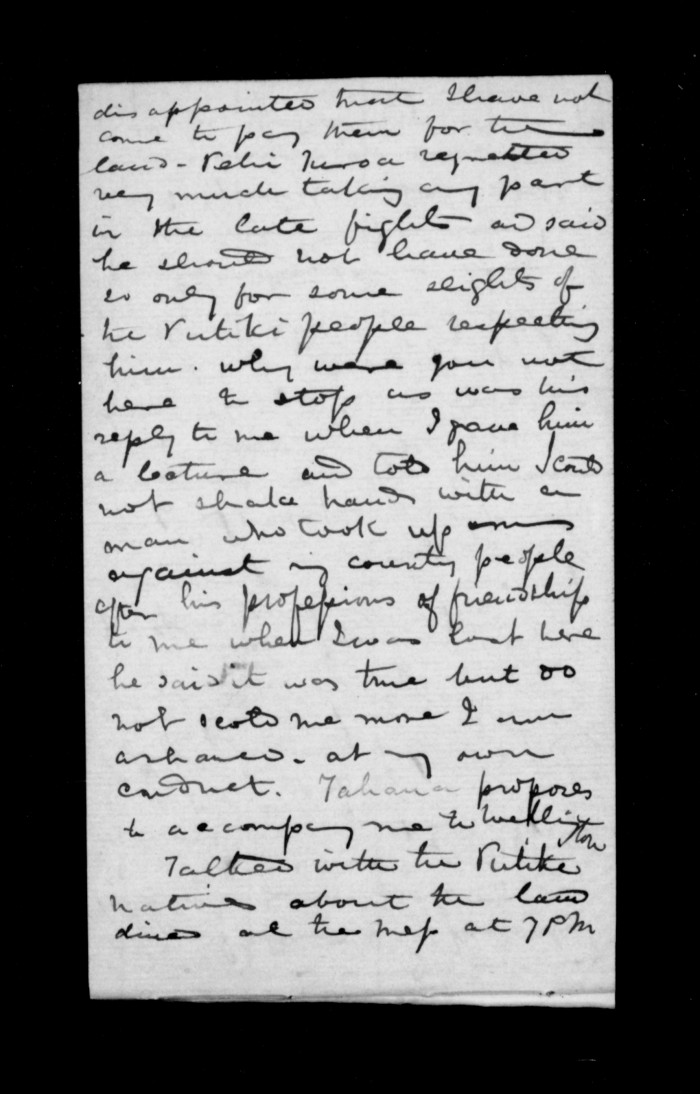 disappointed that I have not
come to pay them for the
land - regretted
very much taking any part
in the late fights and said
he should not have done
so only for some slights of
the Putiki people respecting
him. Why were you not
here to stop us was his
reply to me when I gave him
a lecture and told him I could
not shake hands with a
man who took up arms
against my country people
after his professions of friendship
to me when I was last here
he said it was true but do
not scold me more I am
ashamed. at my own
conduct. Tahana proposes
to accompany me to Wellington
Talked with the Putiki
natives about the land
dined at the mess at 7 PM